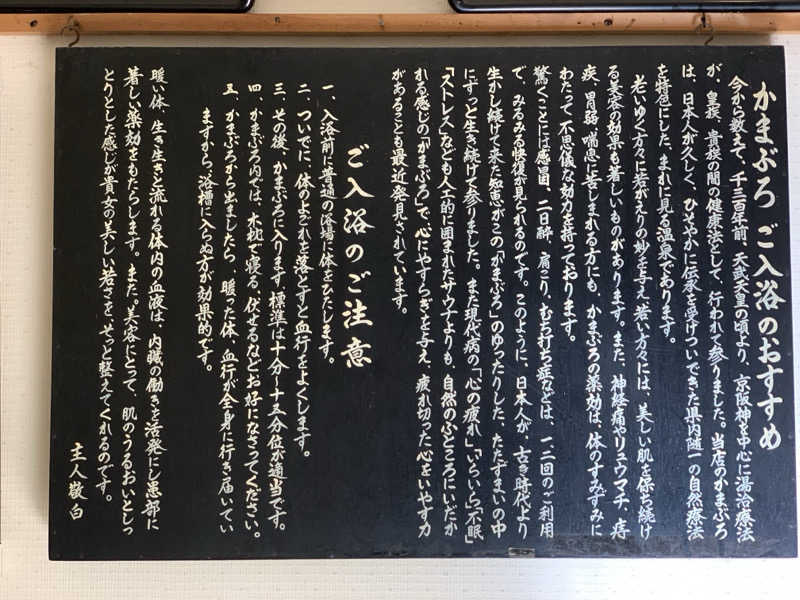 かまぶろ ご入浴のおすすめ
今から数えて、千三百年前、天武天皇の頃より、京阪神を中心に湯治療法
が、皇族、貴族の間の健康法として、行われて参りました。当店のかまぶろ
は、日本人が久しく、ひそやかに伝承を受けついできた県内随一の自然療法
を特色にした、まれに見る温泉であります。
老いゆく方々に若がえりの妙を与え、若い方々には、美しい肌を保ち続け
る美容の効果も著しいものがあります。また、神経痛やリュウマチ、痔
疾、胃弱、喘息に苦しまれる方にも、かまぶろの薬効は、体のすみずみに
わたって不思議な効力を持っております。
驚くことには感冒、二日酔、肩こり、むち打ち症などは、一二回のご利用
で、みるみる快復が見られるのです。このように、日本人が、古き時代より
生かし続けて来た知恵がこの「かまぶろ」のゆったりした、たたずまいの中
にずっと生き続けて参りました。また現代病の「心の疲れ」「いらいら」「不眠」
「ストレス」なども人工的に囲まれたサウナよりも、自然のふところにいだか
れる感じの「かまぶろ」で、心にやすらぎを与え、疲れ切った心をいやす力
があることも最近発見されています。
ご入浴のご注意
一、入浴前に普通の浴場に体をひたします。
二、ついでに、体のよごれを落とすと血行をよくします。
三、その後、かまぶろに入ります。標準は十分〜十五分位が適当です。
四、かまぶろ内では、木枕で寝る、伏せるなどお好になさってください。
五、かまぶろから出ましたら、暖った体、血行が全身に行き届いてい
ますから、浴槽に入らぬ方が効果的です。
暖い体、生き生きと流れる体内の血液は、内臓の働きを活発にし患部に
著しい薬効をもたらします。また、美容にとって、肌のうるおいとしっ
とりとした感じが貴女の美しい若さを、そっと整えてくれるのです。
主人敬白